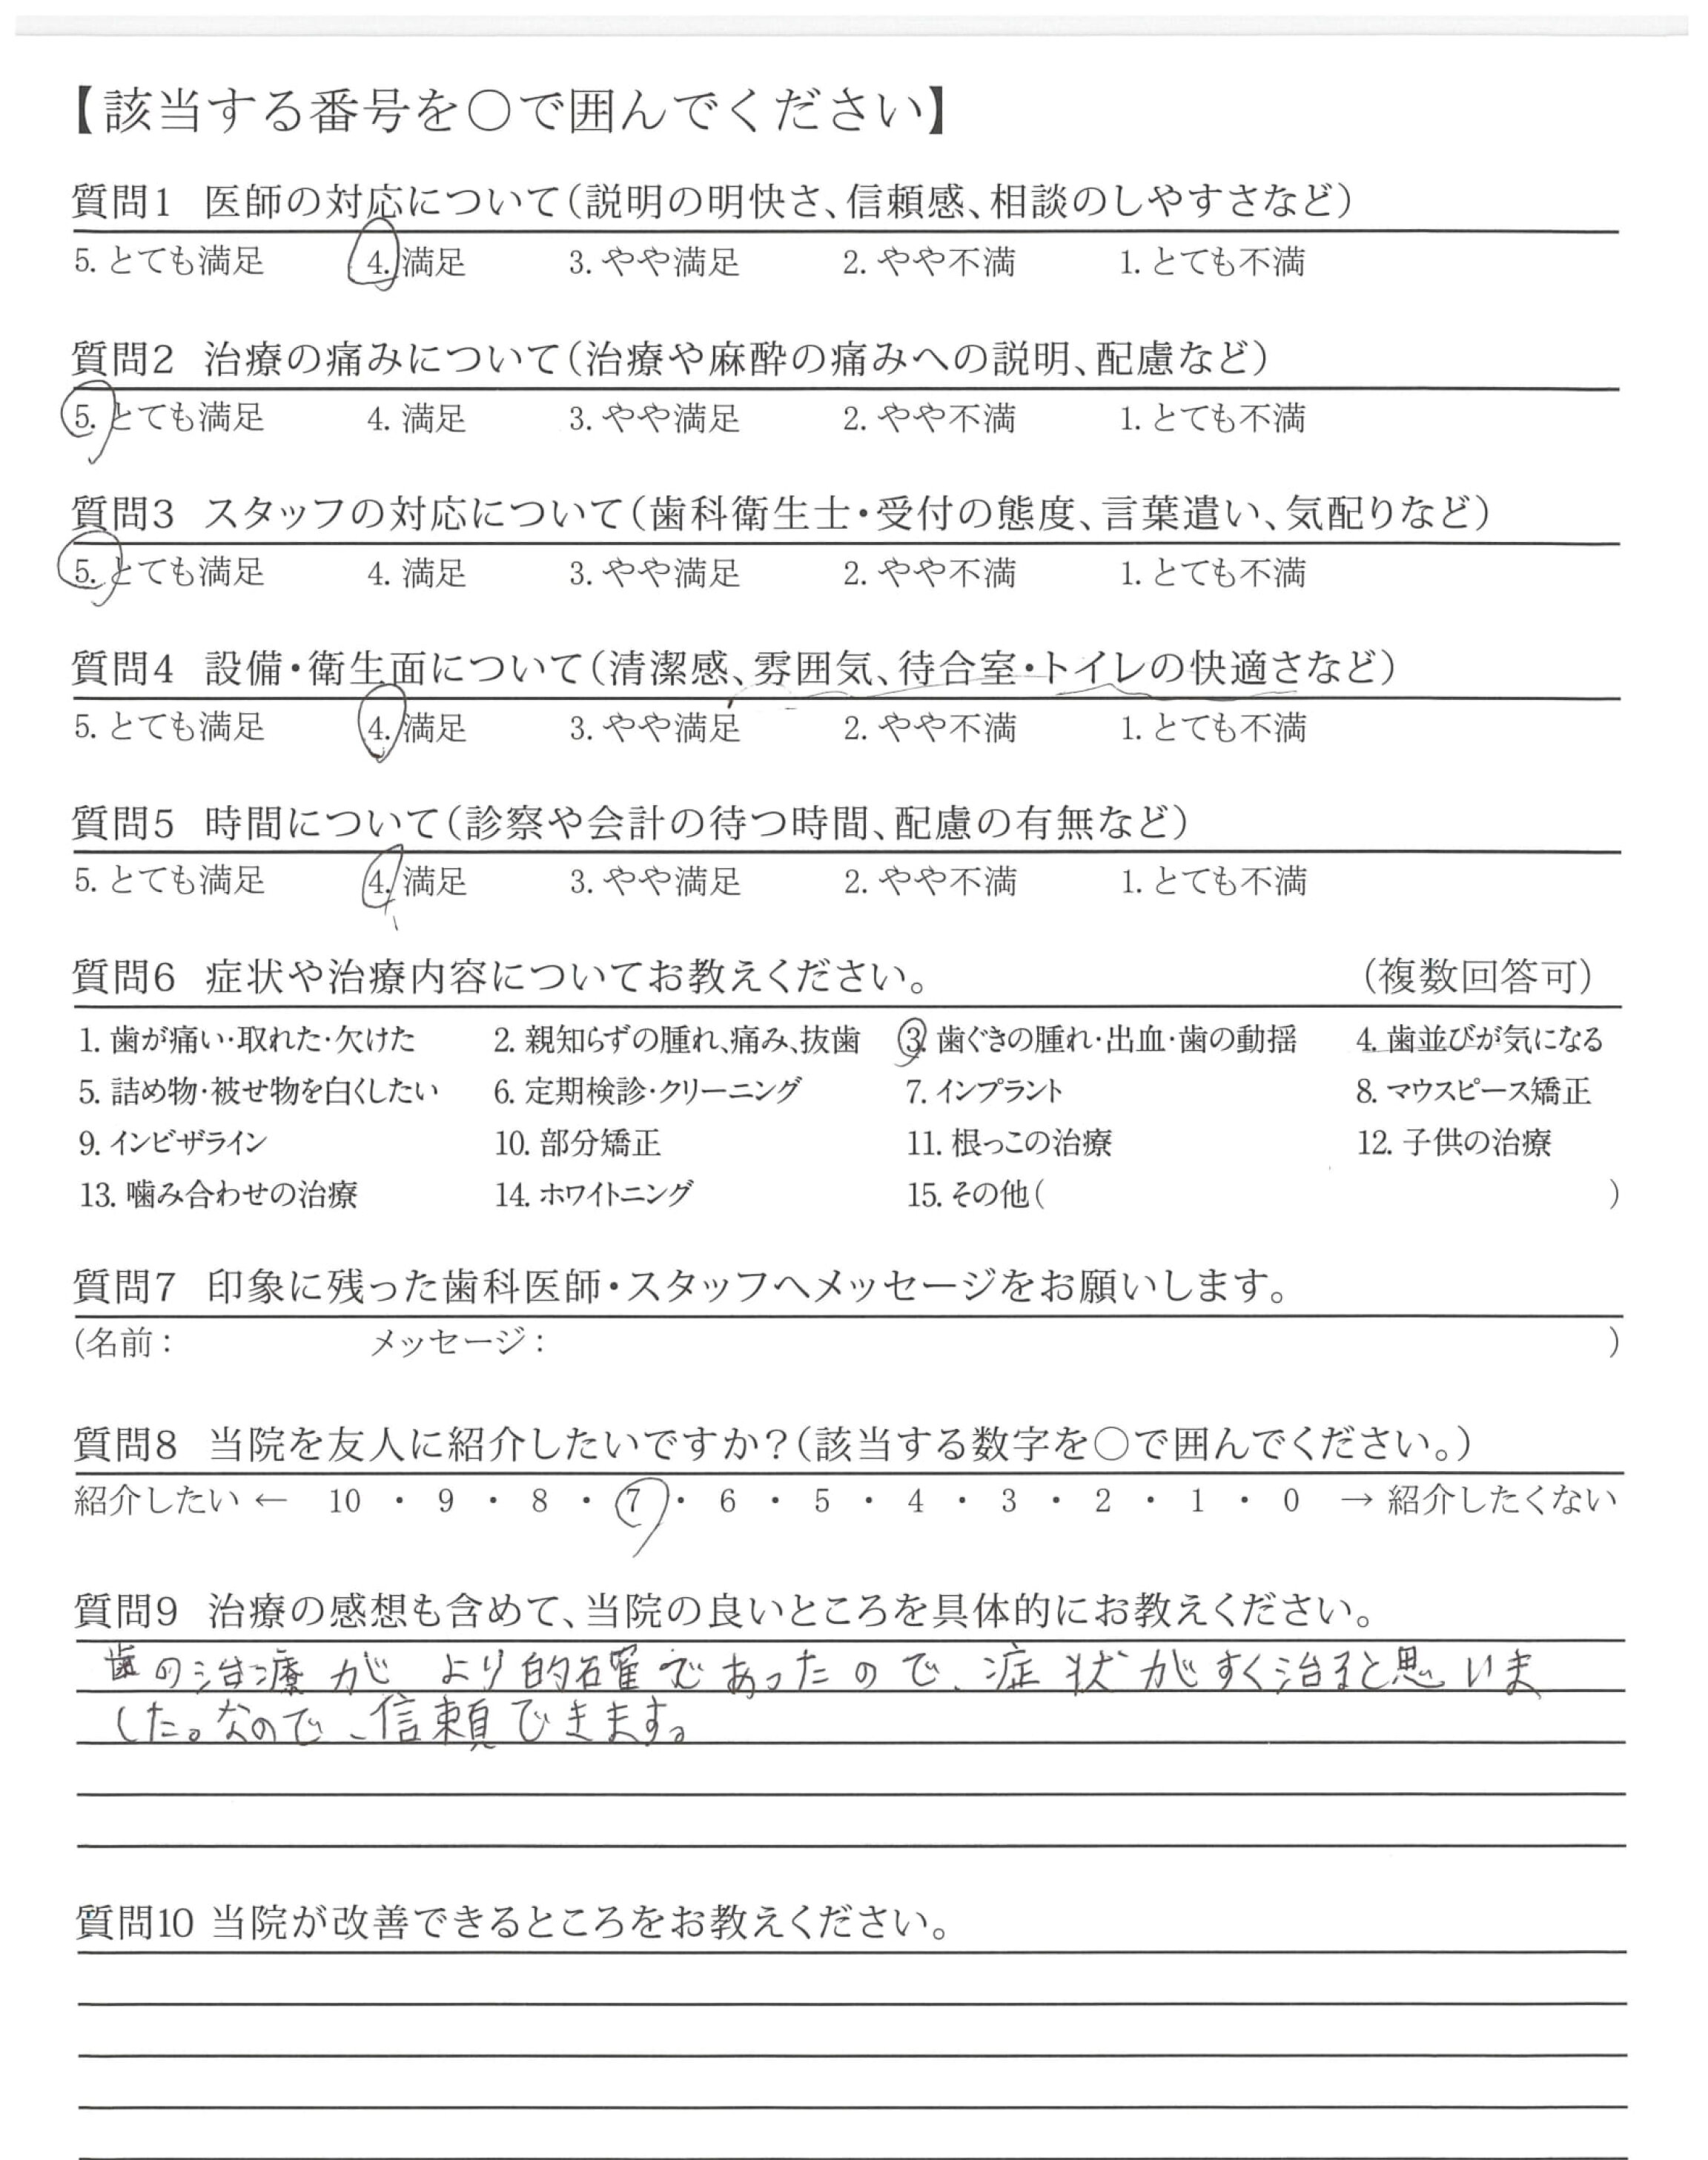 【該当する番号を○で囲んでください】
質問1 医師の対応について(説明の明快さ、信頼感、相談のしやすさなど)
5. とても満足 4. 満足 3. やや満足 2. やや不満 1. とても不満
質問2 治療の痛みについて(治療や麻酔の痛みへの説明、配慮など)
5. とても満足 4. 満足 3. やや満足 2. やや不満 1. とても不満
質問3 スタッフの対応について(歯科衛生士・受付の態度、言葉遣い、気配りなど)
5. とても満足 4. 満足 3. やや満足 2. やや不満 1. とても不満
質問4 設備・衛生面について(清潔感、雰囲気、待合室・トイレの快適さなど)
5. とても満足 4. 満足 3. やや満足 2. やや不満 1. とても不満
質問5 時間について(診察や会計の待つ時間、配慮の有無など)
5. とても満足 4. 満足 3. やや満足 2. やや不満 1. とても不満
質問6 症状や治療内容についてお教えください。 (複数回答可)
1. 歯が痛い・取れた・欠けた 2. 親知らずの腫れ、痛み、抜歯 3. 歯ぐきの腫れ・出血・歯の動揺 4. 歯並びが気になる
5. 詰め物・被せ物を白くしたい 6. 定期検診・クリーニング 7. インプラント 8. マウスピース矯正
9. インビザライン 10. 部分矯正 11. 根っこの治療 12. 子供の治療
13. 噛み合わせの治療 14. ホワイトニング 15. その他( )
質問7 印象に残った歯科医師・スタッフへメッセージをお願いします。
(名前： メッセージ： )
質問8 当院を友人に紹介したいですか?(該当する数字を○で囲んでください。)
紹介したい ← 10 ・ 9 ・ 8 ・ 7 ・ 6 ・ 5 ・ 4 ・ 3 ・ 2 ・ 1 ・ 0 → 紹介したくない
質問9 治療の感想も含めて、当院の良いところを具体的にお教えください。
歯の治療がより的確であったので、症状がすく治ると思いま
した。なので、信頼できます。
質問10 当院が改善できるところをお教えください。